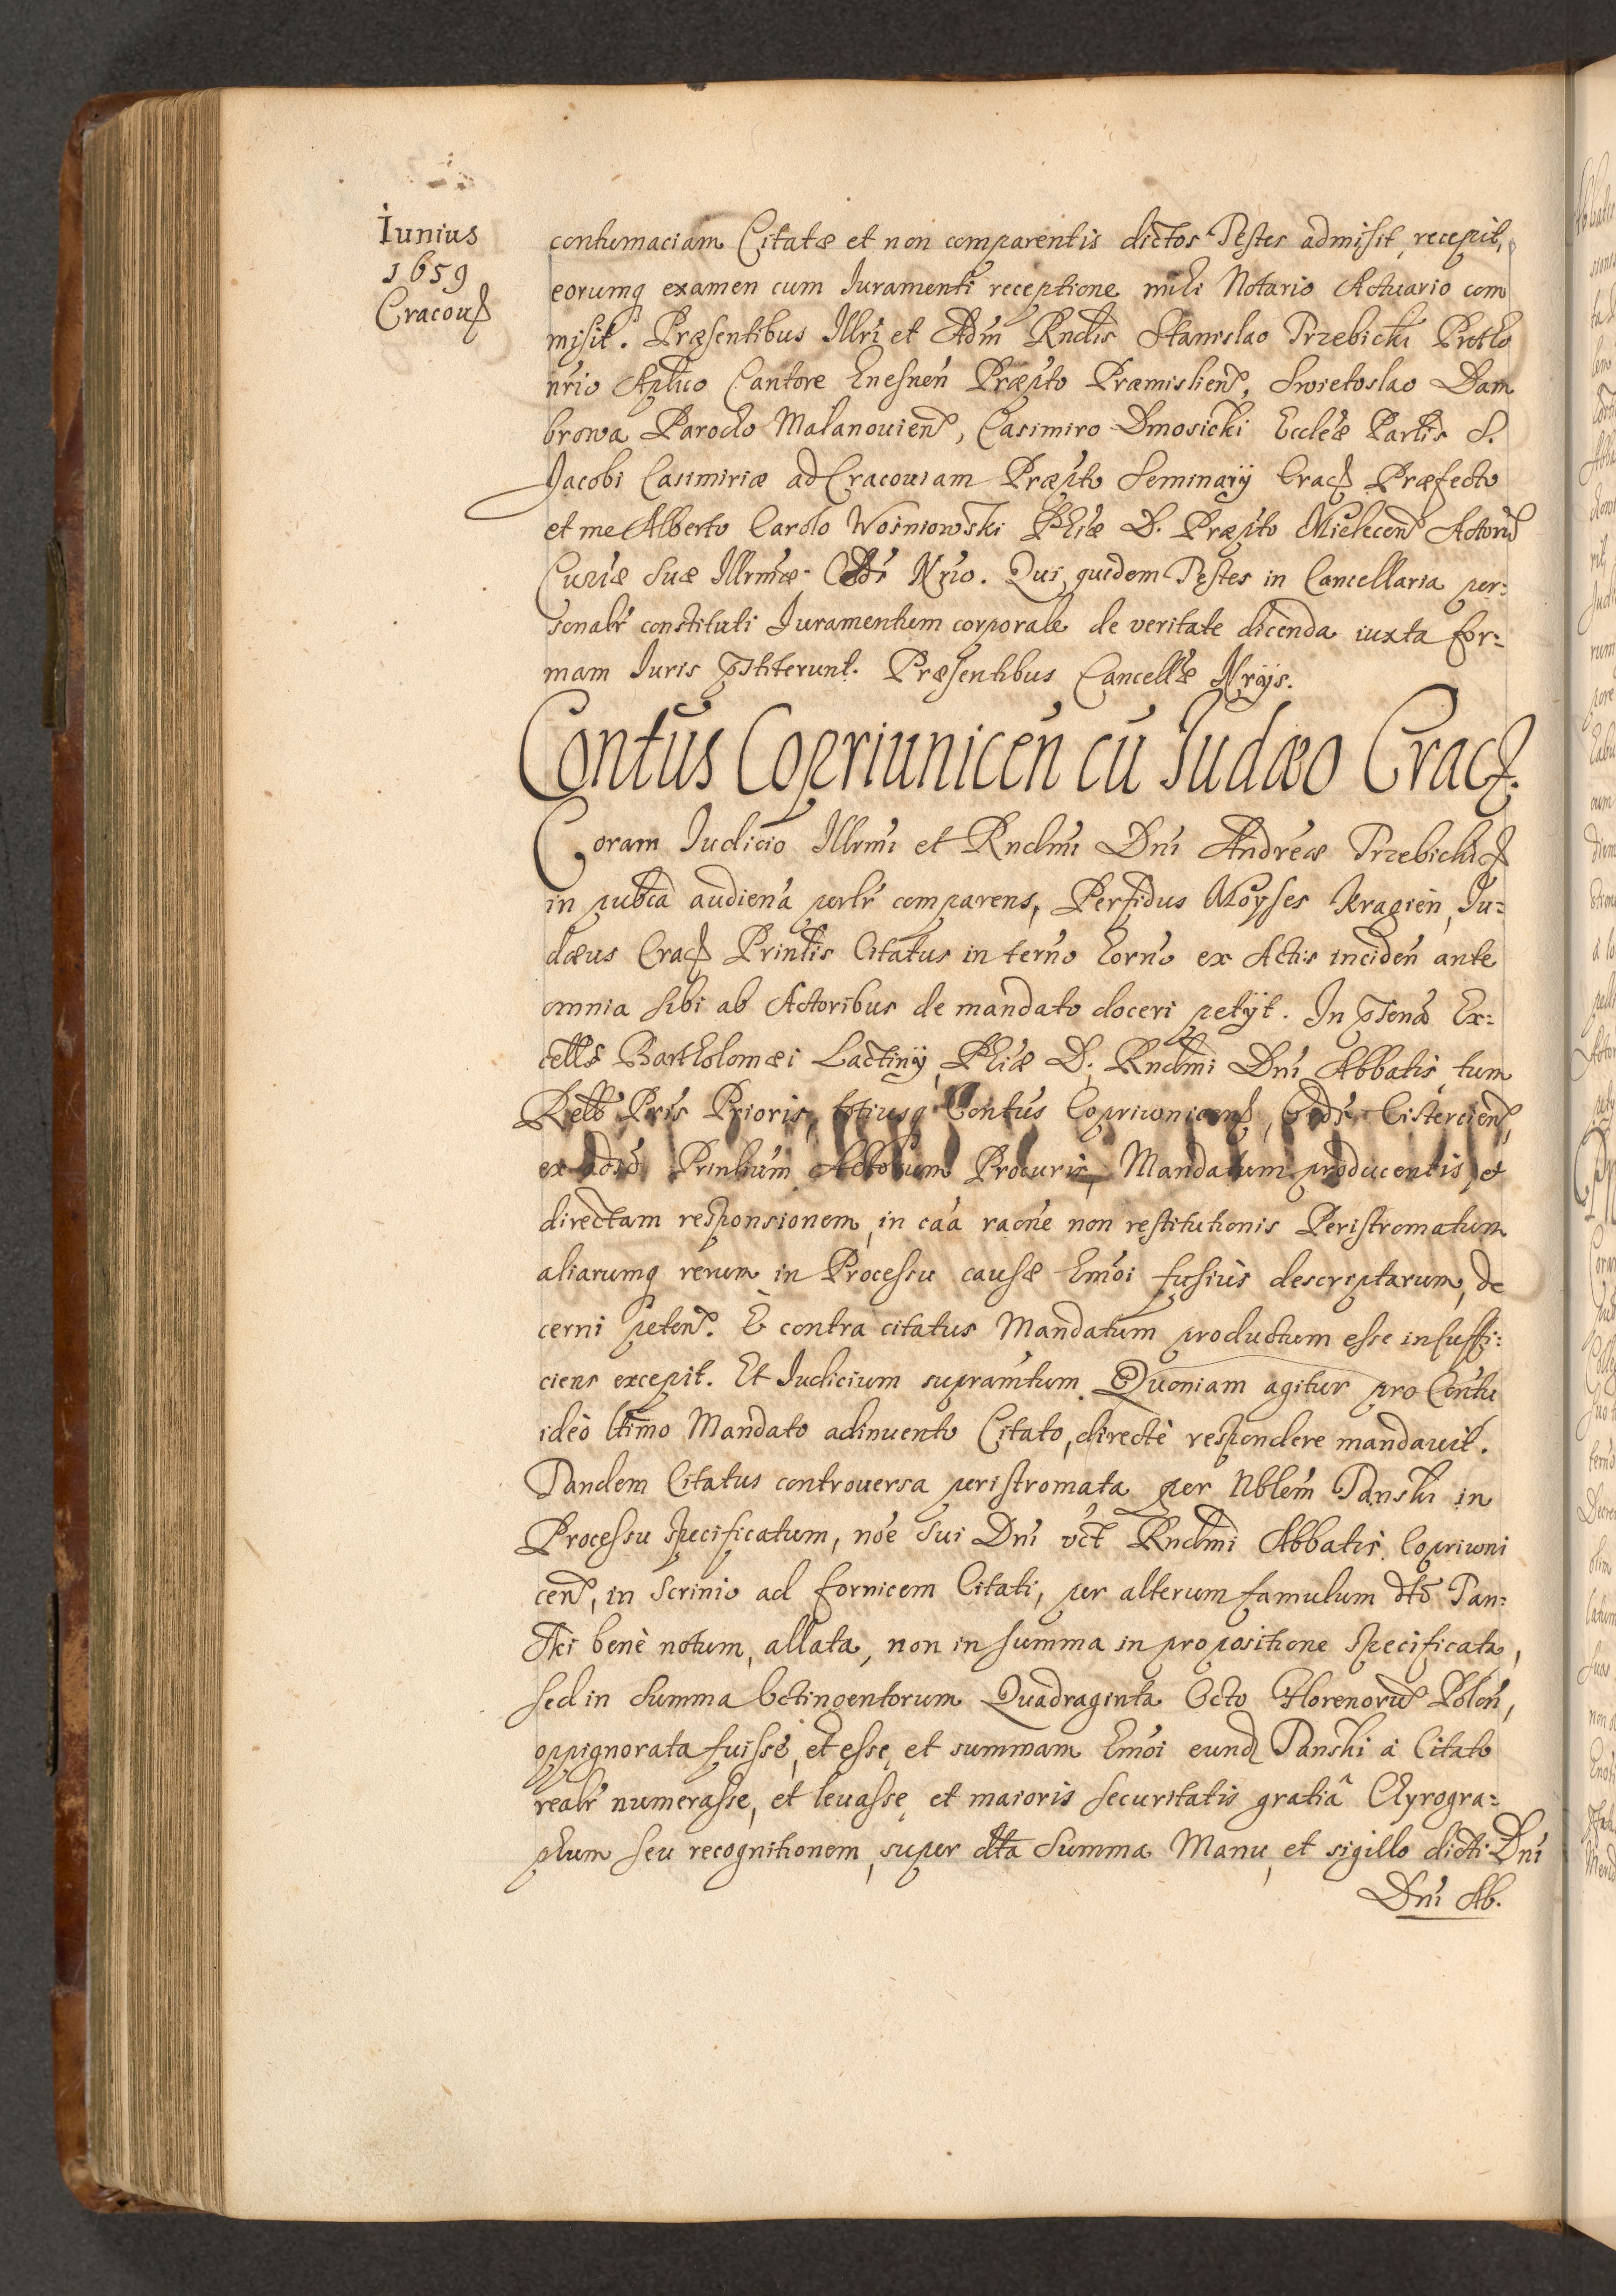 Iunius
1659
Cracou
contumaciam Citatæ et non comparentis dictos Testes admisit, recepit,
eorumq examen cum Iuramenti receptione mihi Notario Actuario com
misit. Præsentibus Illri et Adm Rndis Stanislao Trzebicki Protho
nrio Aplico Cantore Gnesnen Præpto Præmislien, Swietoslao Dam
browa Parocho Malanouien, Casimiro Dmosicki Eccleæ Partis S.
Jacobi Casimiriæ ad Cracouiam Præpto Seminarÿ Crac Præfecto
et me Alberto Carolo Wosniowski Phiæ D. Præpto Mielecen Actorũ
Curiæ Suæ Illrmæ Nrio. Qui quidem Testes in Cancellaria per:
sonalr constituti Iuramentum corporale de veritate dicenda iuxta for:
mam Iuris pstiterunt. Præsentibus Cancellæ Nrÿs.
Contus Copriunicen cu Iudæo Crac.
Coram Iudicio Illrmi et Rndmi Dni Andreæ Trzebicki
in pubca audiena perlr comparens, Perfidus Moÿses Kragien, Iu:
dæus Crac Printis Citatus in terno horno ex Actis inciden ante
omnia sibi ab Actoribus de mandato doceri petÿt. In psena Ex:
cells Bartholomæi Lactinÿ, Phiæ D. Rndmi Dni Abbatis, tum
Relb Pris Prioris, totiusq Contus Copriwnicen, Ordi Cistercien,
ex Printium Actorum Procuris, Mandatum producentis, et
directam responsionem, in caa raone non restitutionis Peristromatum
aliarumq rerum in Processu causæ hmoi fusius descriptarum, de
cerni peten. E contra citatus Mandatum productum esse insuffi:
ciens excepit. Et Iudicium supramtum. Quoniam agitur pro Contu
ideò ltimo Mandato adinuento Citato, directè respondere mandauit.
Tandem Citatus controuersa peristromata per Nblem Panski in
Processu specificatum, noe sui Dni vct Rndmi Abbatis Copriwni
cen, in Scrinio ad fornicem Citati, per alterum famulum dto Pan:
ski benè notum, allata, non in summa in propositione specificata,
sed in Summa Octingentorum Quadraginta Octo Florenorũ Polon,
oppignorata fuisse, et esse, et summam hmoi eund Panski à Citato
realr numerasse, et leuasse, et maioris securitatis gratiâ Chyrogra:
phum seu recognitionem, super dta Summa Manu, et sigillo dicti Dni
Dni Ab.